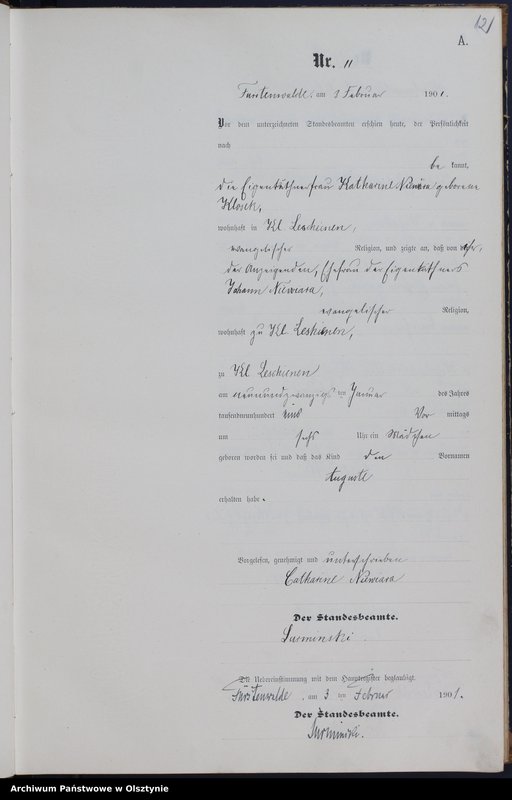 121
A.
Nr. 11
Fürstenwalde, am 3 Februar 1901.
Vor dem unterzeichneten Standesbeamten erschien heute, der Persönlichkeit
nach
be kannt,
die Eigenkäthnerfrau Katharine Niewiara geborene
Klosch,
wohnhaft in Kl. Leschienen,
evangelischer Religion, und zeigte an, daß von ihr,
der Anzeigenden, Ehefrau des Eigenkäthners
Johann Niewiara,
evangelischer Religion,
wohnhaft zu Kl. Leschienen,
zu Kl Leschienen
am neunundzwanzigs ten Januar des Jahres
tausendneunhundert eins Vor mittags
um sechs Uhr ein Mädchen
geboren worden sei und daß das Kind den Vornamen
Auguste
erhalten habe.
Vorgelesen, genehmigt und unterschrieben
Catharine Niewiara
Der Standesbeamte.
Surminski.
Die Uebereinstimmung mit dem Hauptregister beglaubigt.
Fürstenwalde, am 3 ten Februar 1901.
Der Standesbeamte.
Surminski.
Archiwum Państwowe w Olsztynie